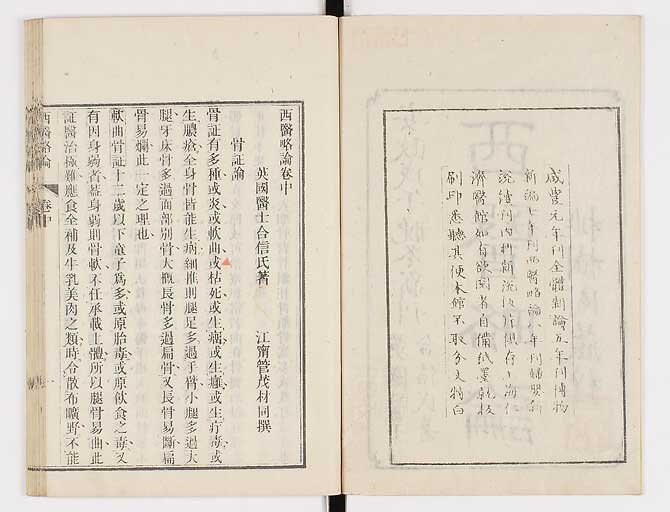 咸豐元年刊全體新論五年刊博物
新編七年刊西醫略論八年刊婦嬰新
說續刊內科新說板片俱存上海仁
濟醫館如有欲閱者自備紙墨就板
刷印悉聽其便本館不取分文特白
西醫略論卷中
英國醫士合信氏著
江甯管茂材同撰
骨証論
骨証有多種或炎或軟曲或枯死或生瘤或生癰或生疔毒或
生膿瘡全身骨皆能生病細推則腿足多過手臂小腿多過大
腿牙床骨多過面部別骨大概長骨多過扁骨又長骨易斷扁
骨易爛此一定之理也
軟曲骨証十二歲以下童子爲多或原胎毒或原飲食之毒又
有因身弱者蓋身弱則骨軟不任承載上體所以腿骨易曲此
証醫治極難應食全補及牛乳美肉之類時令散布曠野不能
西醫略論
卷中